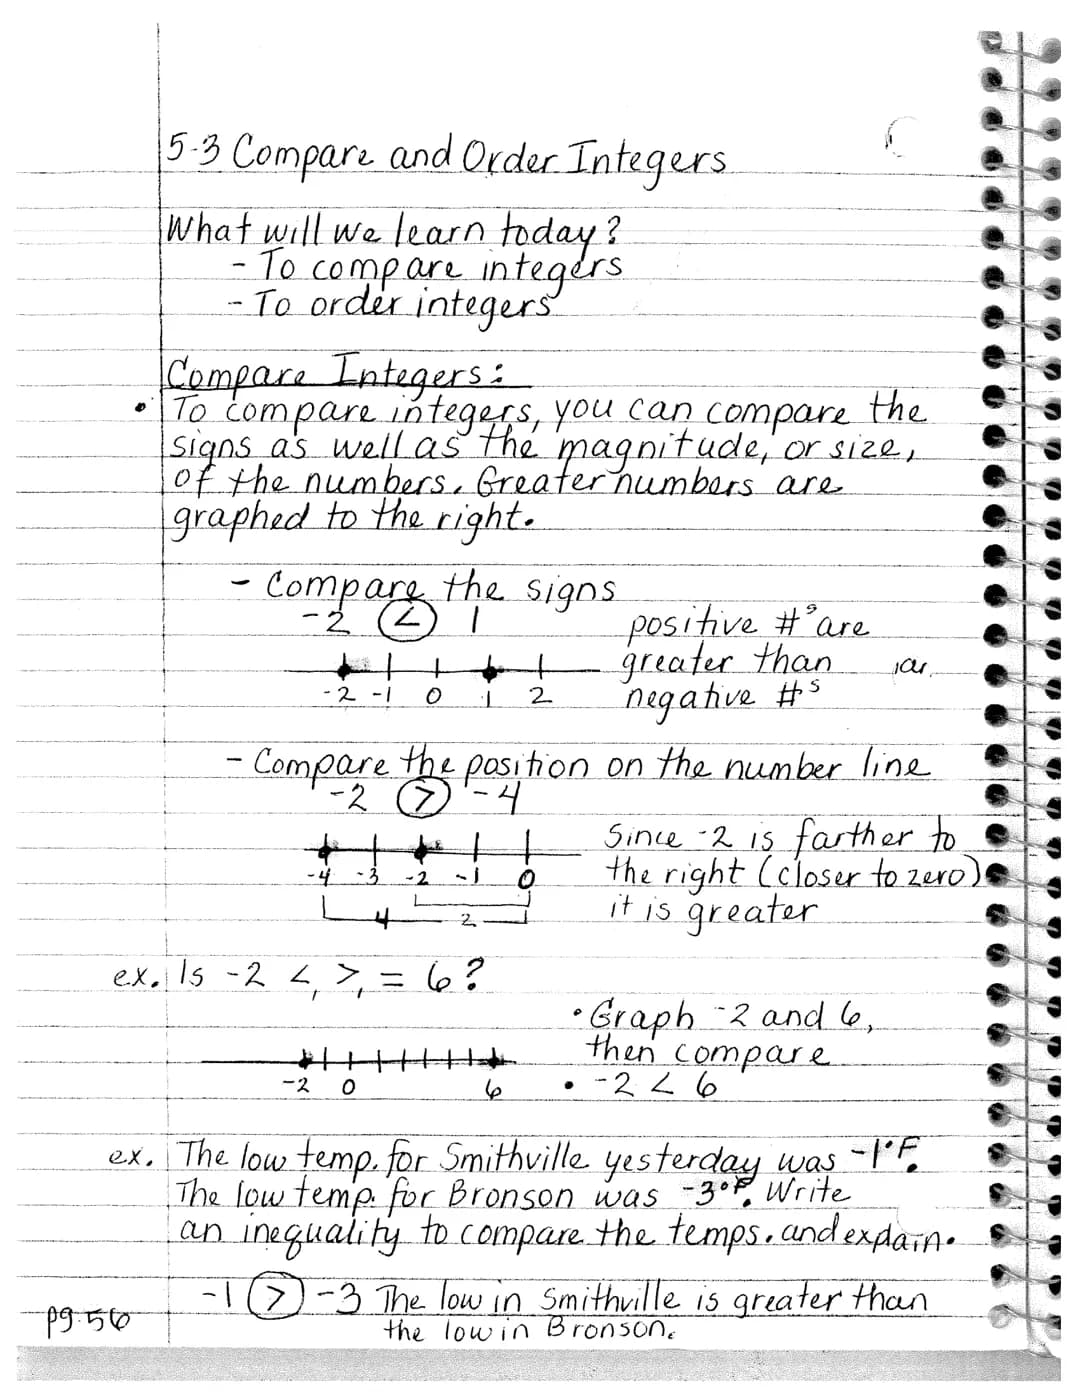 5-3 Compare and Order Integers
What will we learn today?
- To compare integers
- To order integers
Compare Integers:
• To compare integers, you can compare the
signs as well as the magnitude, or size,
of the numbers. Greater numbers are
graphed to the right.
- Compare the signs
-2 < 1
positive #s are
greater than
negative #s
-2 -1 0 1 2
- Compare the position on the number line
-2 > -4
Since -2 is farther to
the right (closer to zero)
it is greater
-4 -3 -2 -1 0
4 2
ex. Is -2 <, >, = 6?
• Graph -2 and 6,
then compare
-2 0 6
• -2 < 6
ex. The low temp. for Smithville yesterday was -1°F.
The low temp. for Bronson was -3°F. Write
an inequality to compare the temps. and explain.
-1 > -3 The low in Smithville is greater than
the low in Bronson.
pg. 56